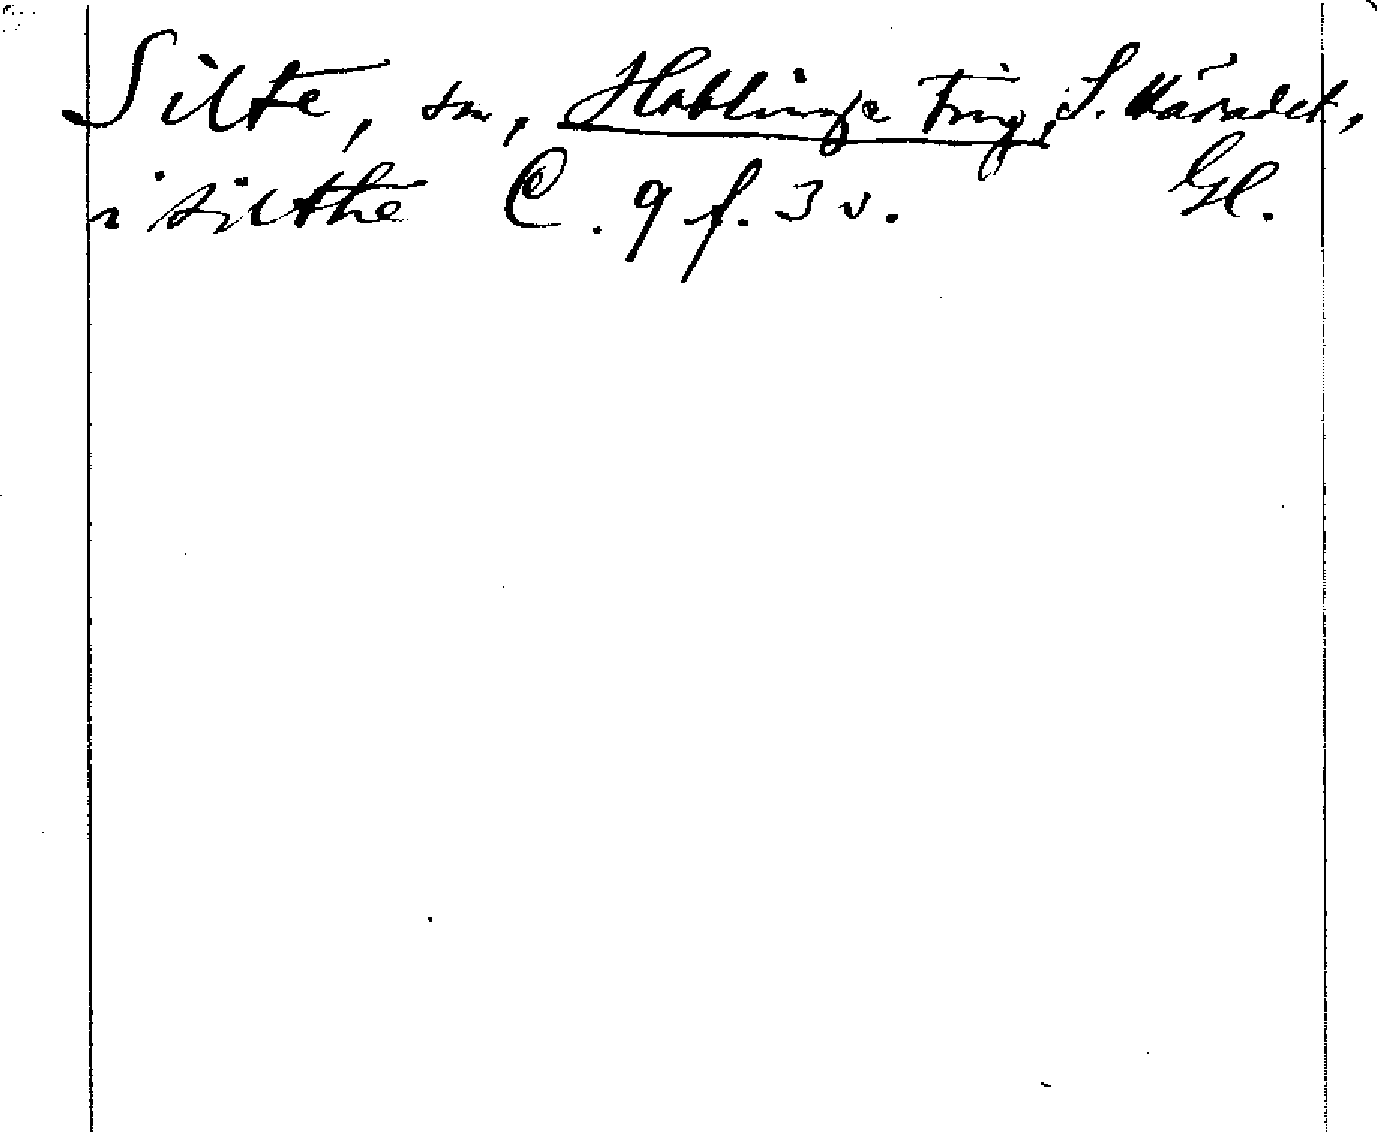 Silte, sn, Hablinge Ting, S. Häradet,
i silthe C. 9 f. 3 v. Gl.